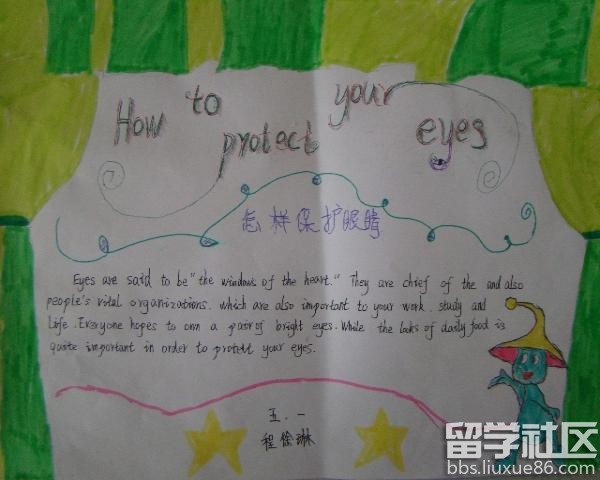 How to protect your eyes
怎样保护眼睛
Eyes are said to be "the windows of the heart." They are chief of the and also
people's vital organizations. which are also important to your work. study and
life. Everyone hopes to own a pair of bright eyes. While the looks of daily food is
quite important in order to protect your eyes.
五.一
程徐琳
留学社区
bbs.liuxue86.com